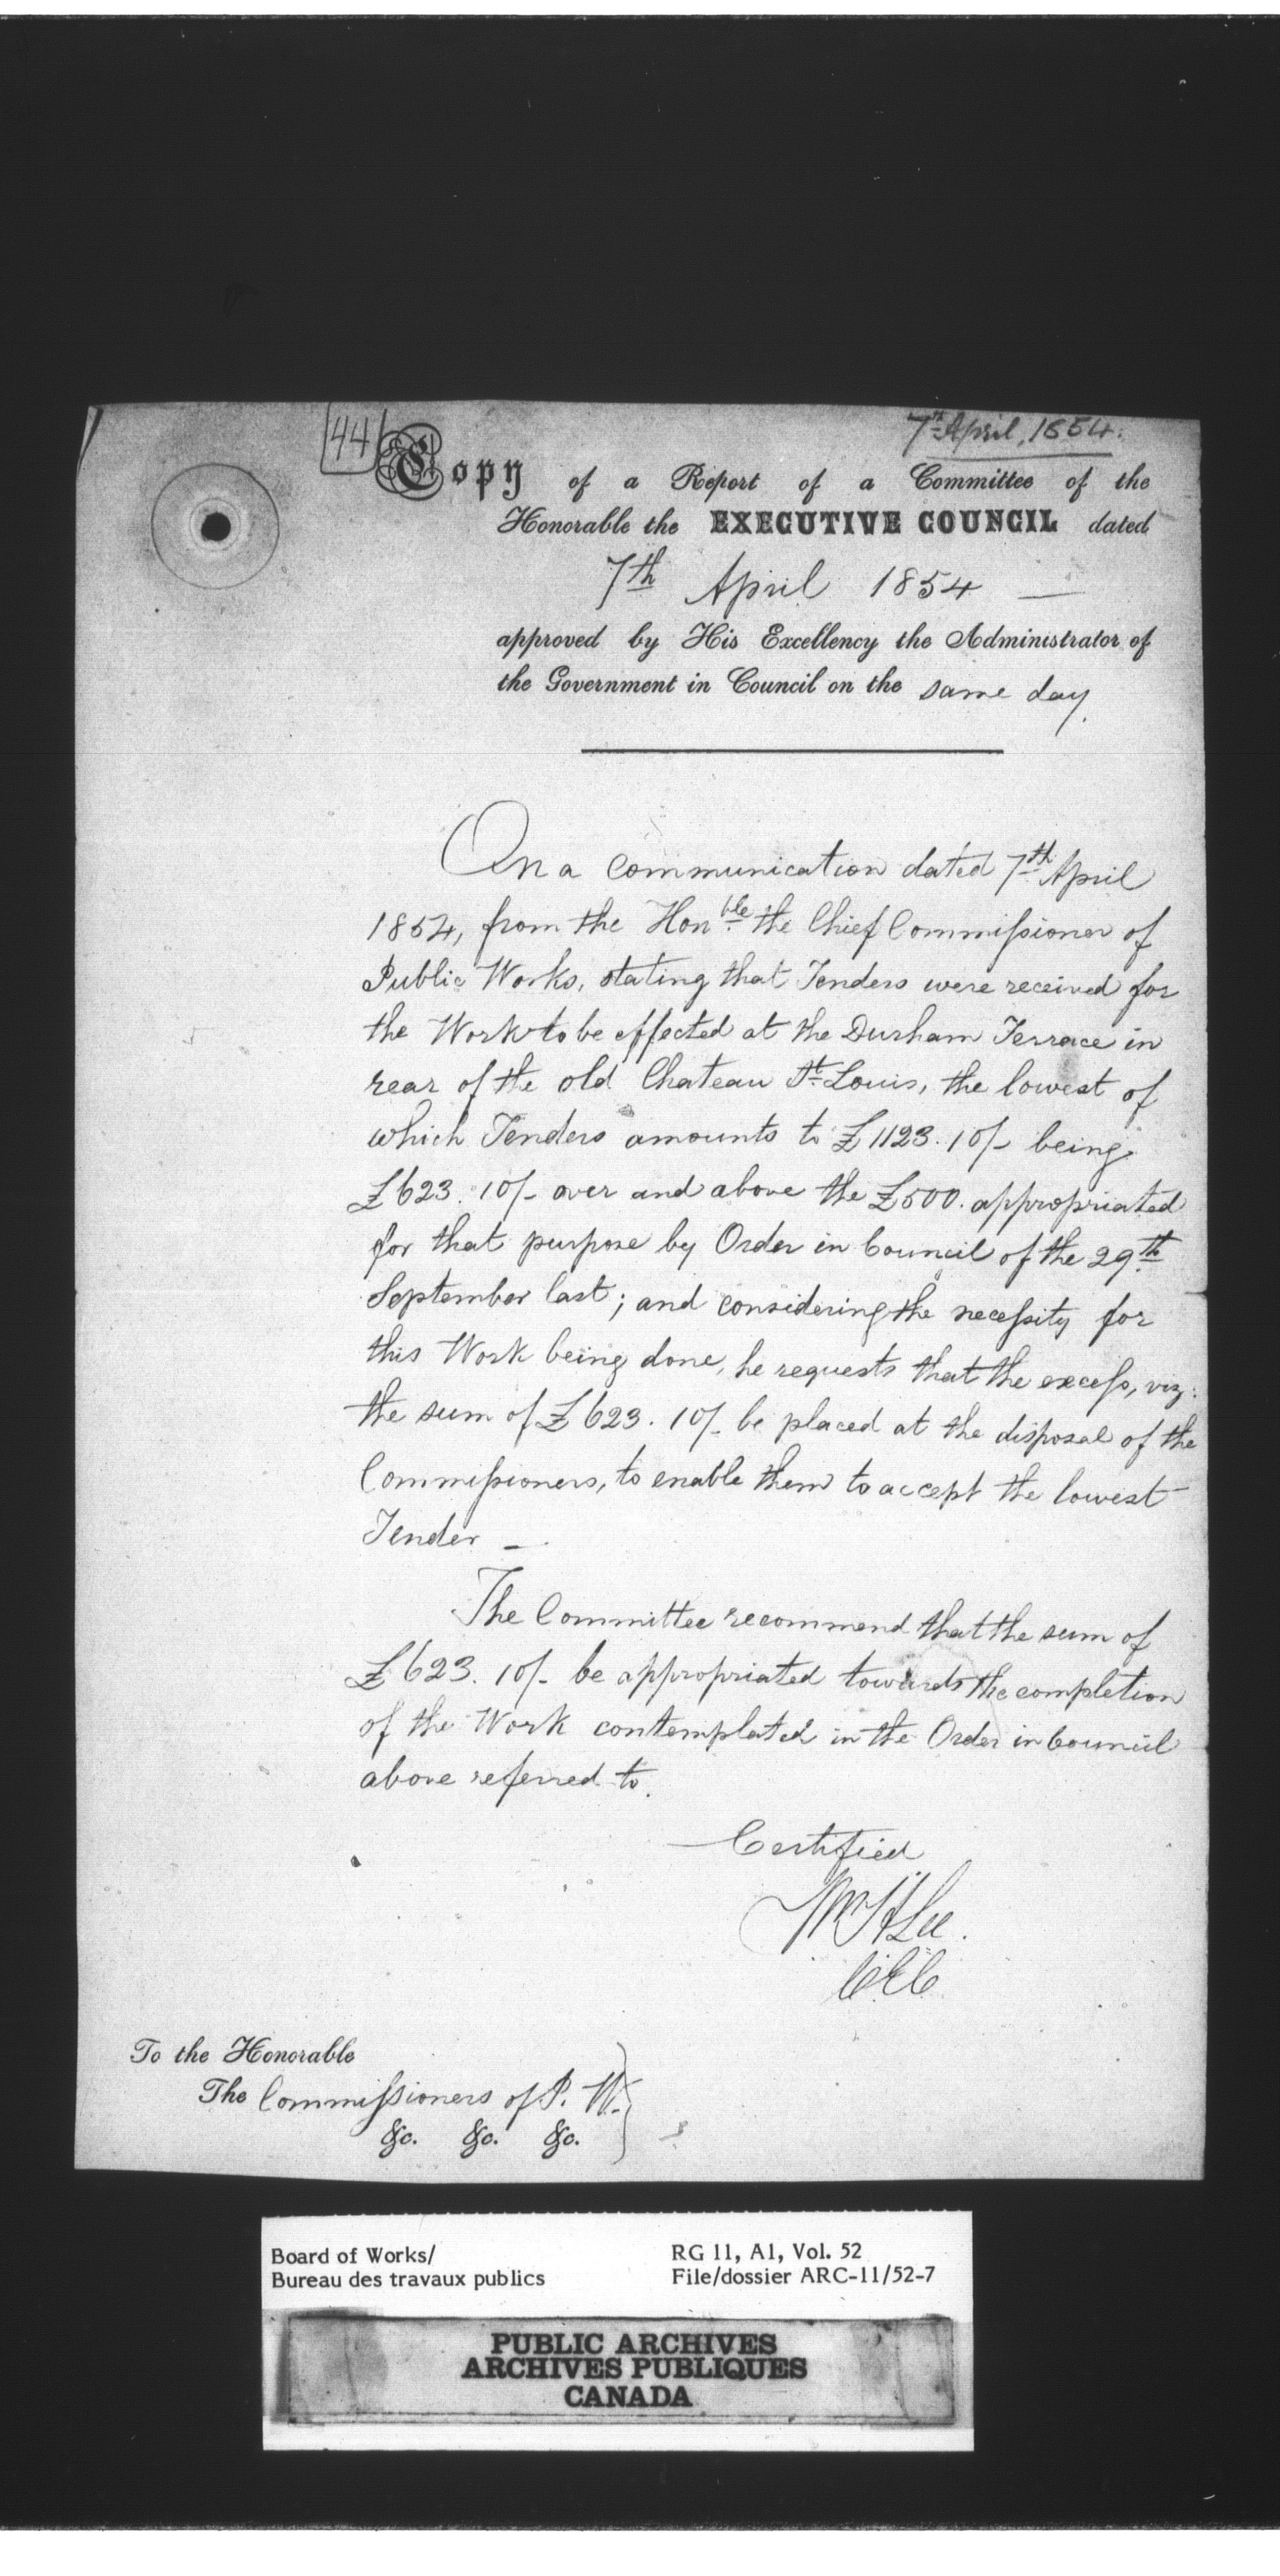 44
7th April, 1854.
Copy of a Report of a Committee of the
Honorable the EXECUTIVE COUNCIL dated
7th April 1854 —
approved by His Excellency the Administrator of
the Government in Council on the same day.
On a Communication dated 7th April
1854, from the Honble the Chief Commissioner of
Public Works, stating that Tenders were received for
the Work to be effected at the Durham Terrace in
rear of the old Chateau St Louis, the lowest of
which Tenders amounts to £1123. 10/- being
£623. 10/- over and above the £500. appropriated
for that purpose by Order in Council of the 29th
September last; and considering the necessity for
this Work being done, he requests that the excess, viz:
the sum of £623. 10/- be placed at the disposal of the
Commissioners, to enable them to accept the lowest
Tender —
The Committee recommend that the sum of
£623. 10/- be appropriated towards the completion
of the Work contemplated in the Order in Council
above referred to.
Certified
Wm H Lee.
C.E.C.
To the Honorable
The Commissioners of P. W.
&c. &c. &c.
Board of Works/
Bureau des travaux publics
RG 11, A1, Vol. 52
File/dossier ARC-11/52-7
PUBLIC ARCHIVES
ARCHIVES PUBLIQUES
CANADA